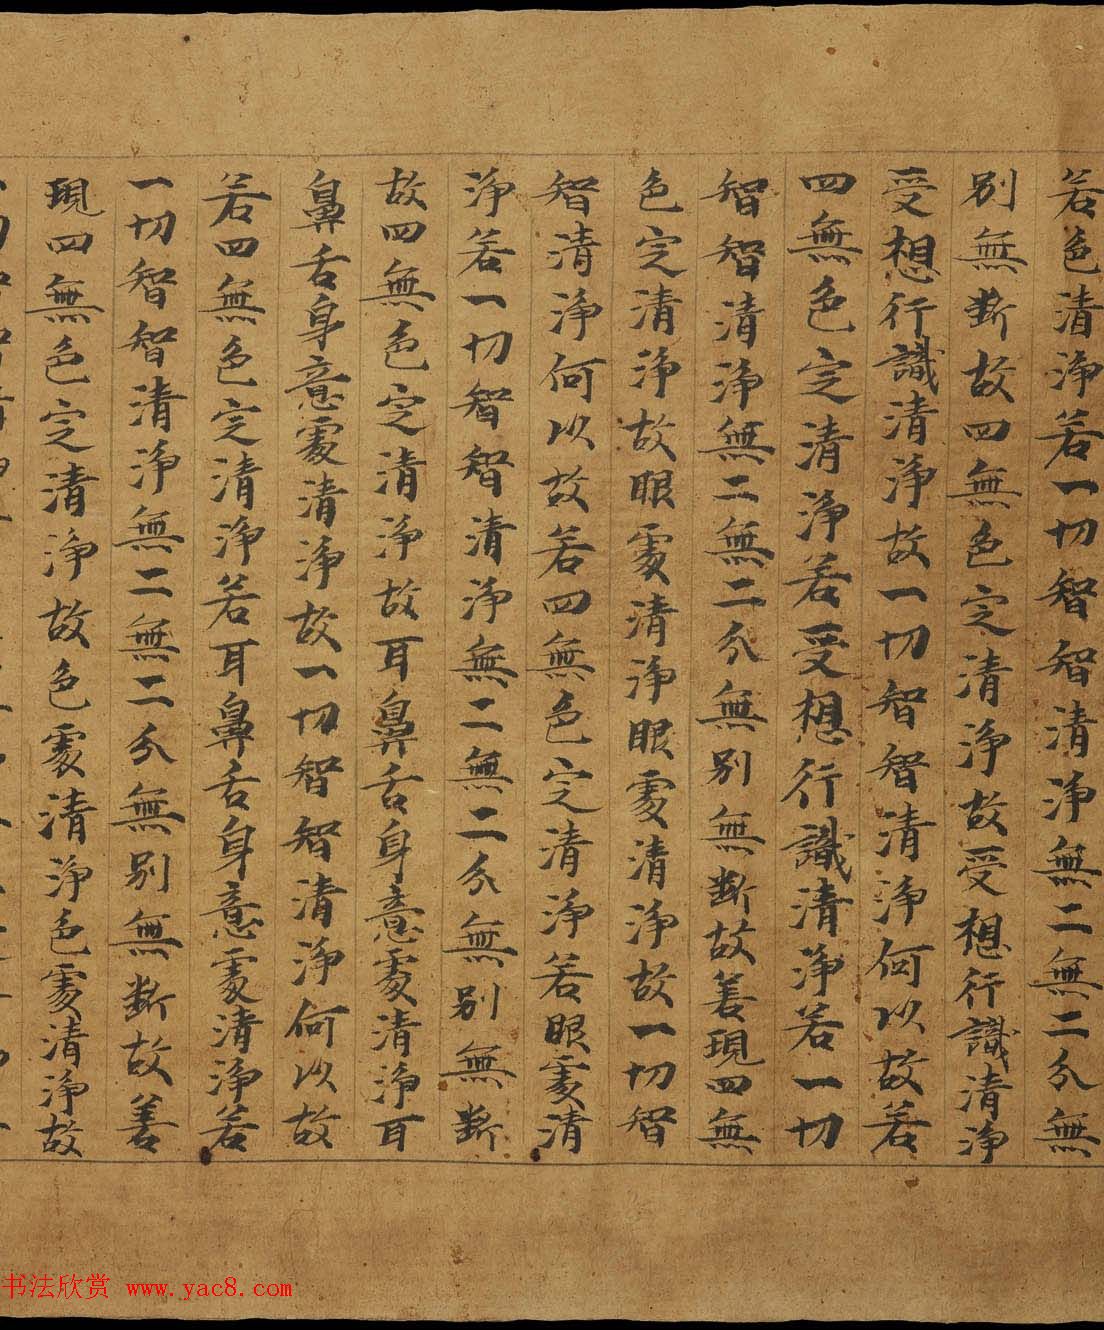 若色清淨若一切智智清淨無二無二分無
別無斷故四無色定清淨故受想行識清淨
受想行識清淨故一切智智清淨何以故若
四無色定清淨若受想行識清淨若一切
智智清淨無二無二分無別無斷故善現四無
色定清淨故眼處清淨眼處清淨故一切智
智清淨何以故若四無色定清淨若眼處清
淨若一切智智清淨無二無二分無別無斷
故四無色定清淨故耳鼻舌身意處清淨耳
鼻舌身意處清淨故一切智智清淨何以故
若四無色定清淨若耳鼻舌身意處清淨若
一切智智清淨無二無二分無別無斷故善
現四無色定清淨故色處清淨色處清淨故
书法欣赏 www.yac8.com